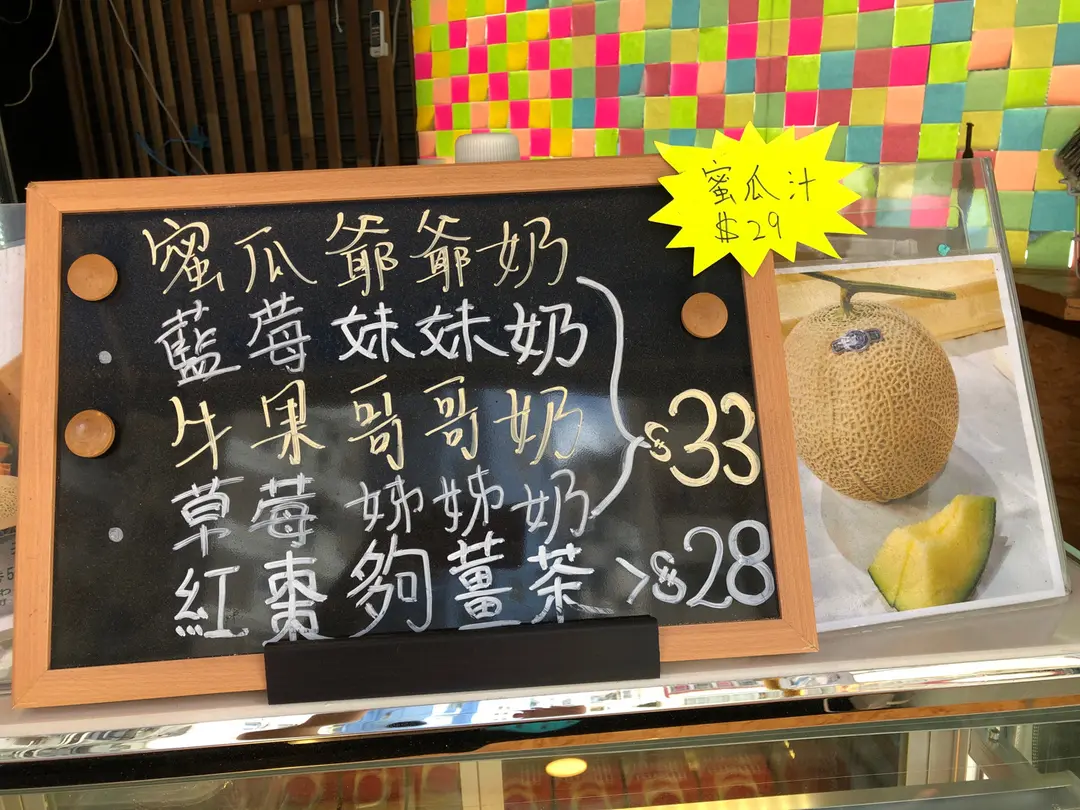 蜜瓜爺爺奶
藍莓妹妹奶
牛果哥哥奶
草莓姊姊奶
$33
紅棗夠薑茶>$28
蜜瓜汁
$29